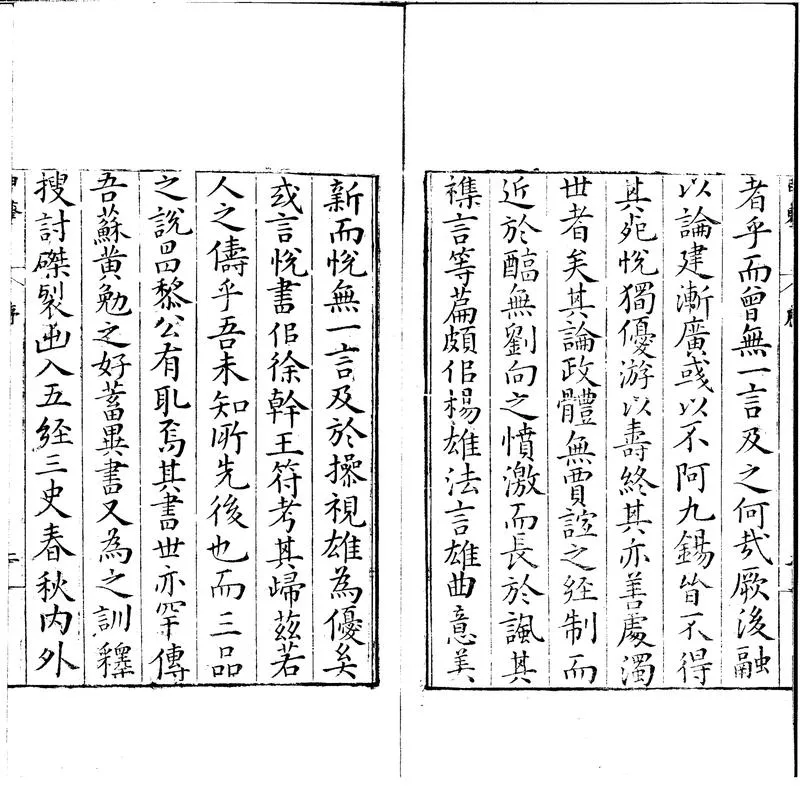 者乎而曾無一言及之何㢤厥後融
以論建漸廣彧以不阿九錫皆不得
其死悅獨優游以壽終其亦善處濁
世者矣其論政體無賈誼之經制而
近於醇無劉向之憤激而長於諷其
襍言等篇頗似楊雄法言雄曲意美
新而悅無一言及於操視雄為優矣
或言悅書似徐幹王符考其歸茲若
人之儔乎吾未知所先後也而三品
之說昌黎公有取焉其書世亦罕傳
吾蘇黃勉之好蓄異書又為之訓釋
搜討磔裂出入五經三史春秋內外
申鑒 序